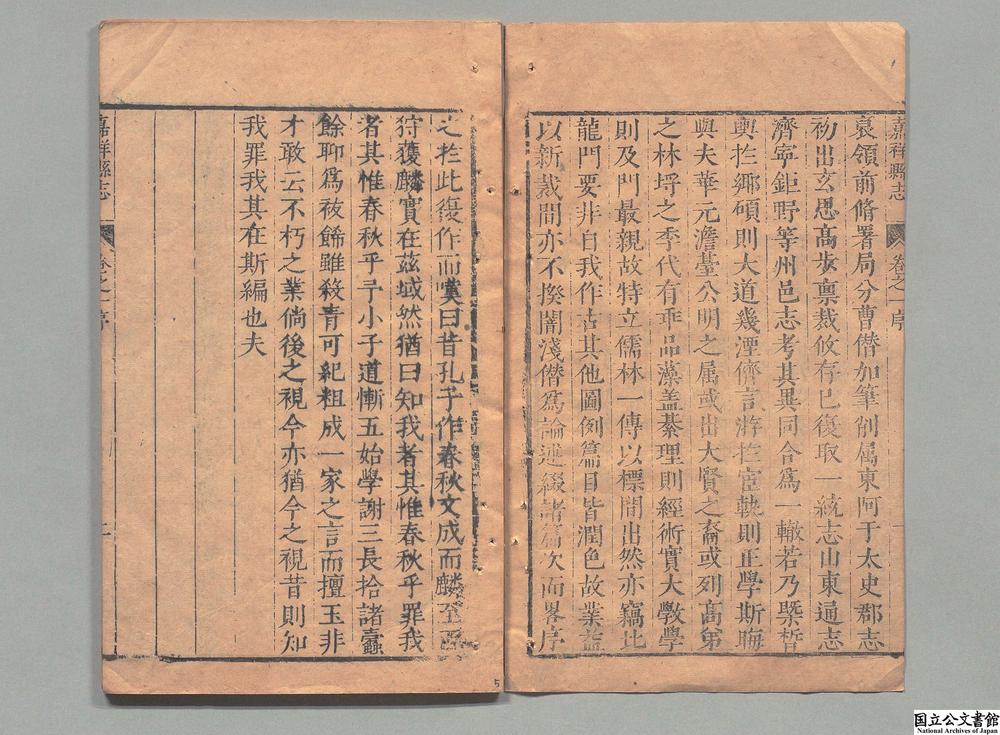 嘉祥縣志
卷之一序
一
裒領前脩署局分曹僣加筆削属東阿于太史郡志
初出玄思高步禀裁攸存已復取一統志山東通志
濟寧鉅野等州邑志考其異同合爲一轍若乃槩晳
輿扵郷碩則大道幾湮儕言游扵宦執則正學斯晦
與夫華元澹䑓公明之属或出大賢之裔或列髙第
之林埒之季代有乖品藻盖綦理則經術實大斆學
則及門最親故特立儒林一傳以標閒出然亦竊比
龍門要非自我作古其他圖例篇目皆潤色故業益
以新裁間亦不揆闇淺僣爲論述綴諸篇次而畧序
之扵此復作而嘆曰昔孔子作春秋文成而麟至西
狩獲麟實在茲域然猶曰知我者其惟春秋乎罪我
者其惟春秋乎予小子道慚五始學謝三長拾諸蠹
餘聊爲祓餙雖殺青可紀粗成一家之言而擅玉非
才敢云不朽之業倘後之視今亦猶今之視昔則知
我罪我其在斯編也夫
嘉祥縣志
卷之一序
二
5
国立公文書館
National Archives of Japan